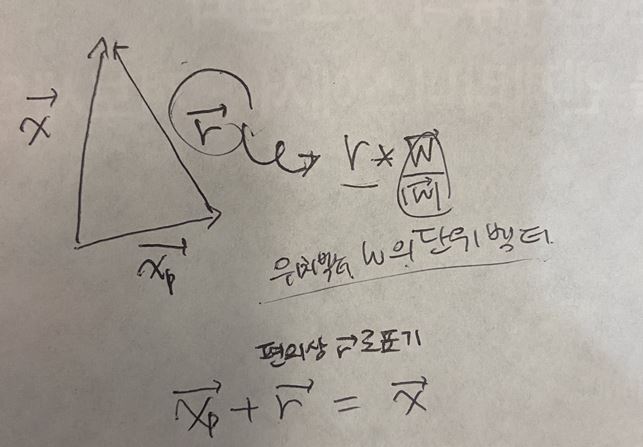 x⃗
r⃗
r * w⃗/|w⃗|
x⃗ₚ
위치벡터 w의 단위벡터
편의상 r⃗로 표기
x⃗ₚ + r⃗ = x⃗